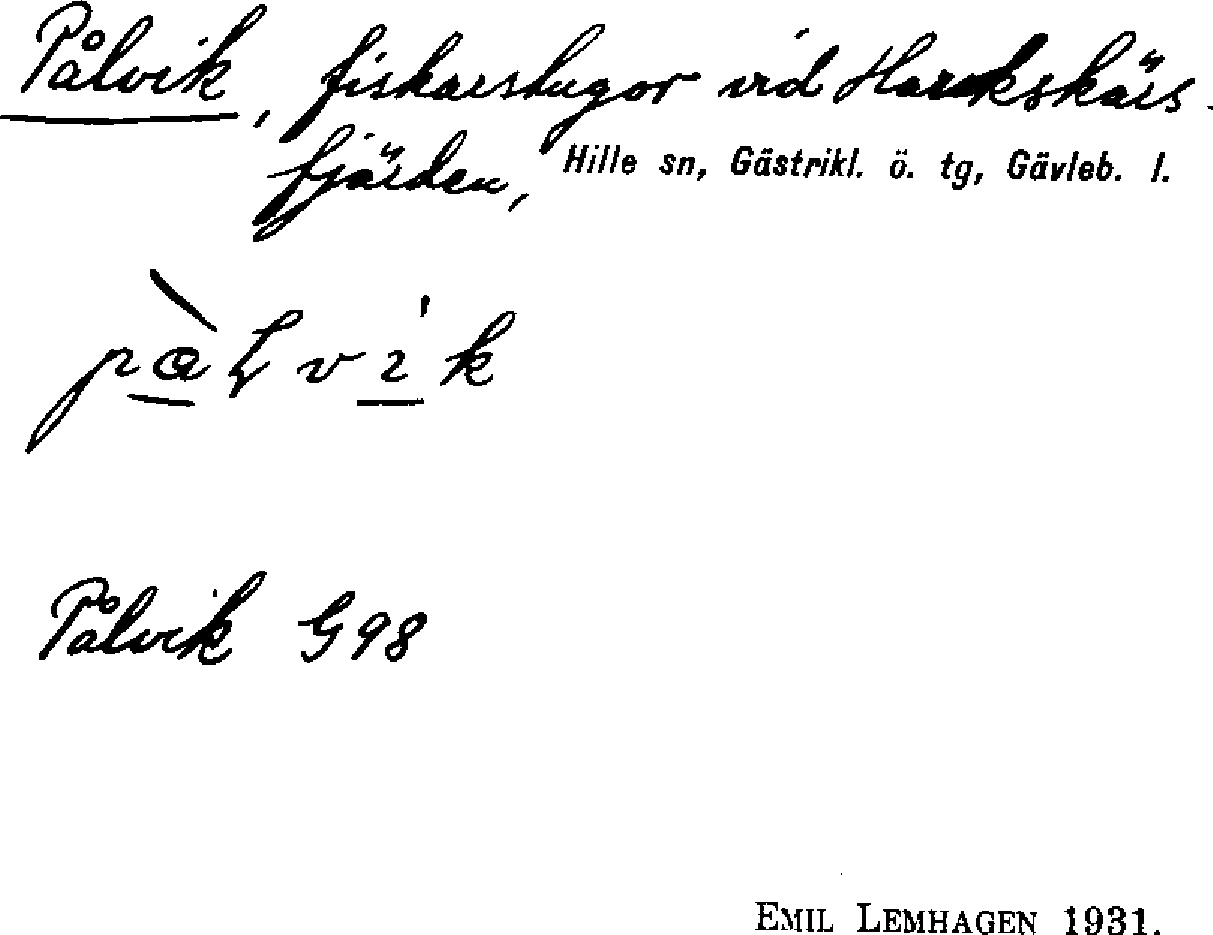 Pålvik, fiskarstugor vid Harkskärs-
fjärden, Hille sn, Gästrikl. ö. tg, Gävleb. l.
Pålvik G98
EMIL LEMHAGEN 1931.